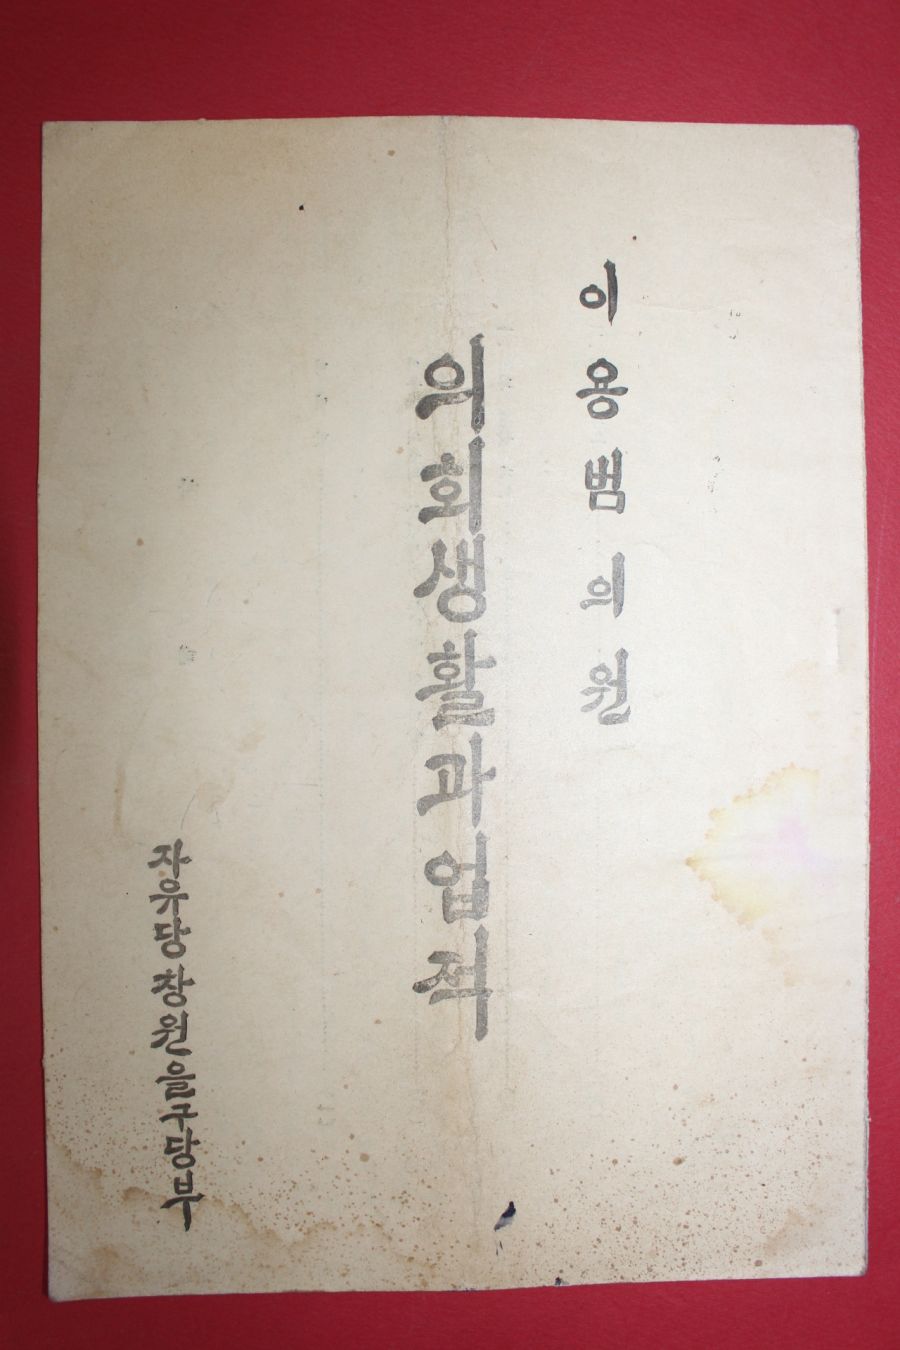 이용범의원
의회생활과업적
자유당창원을구당부